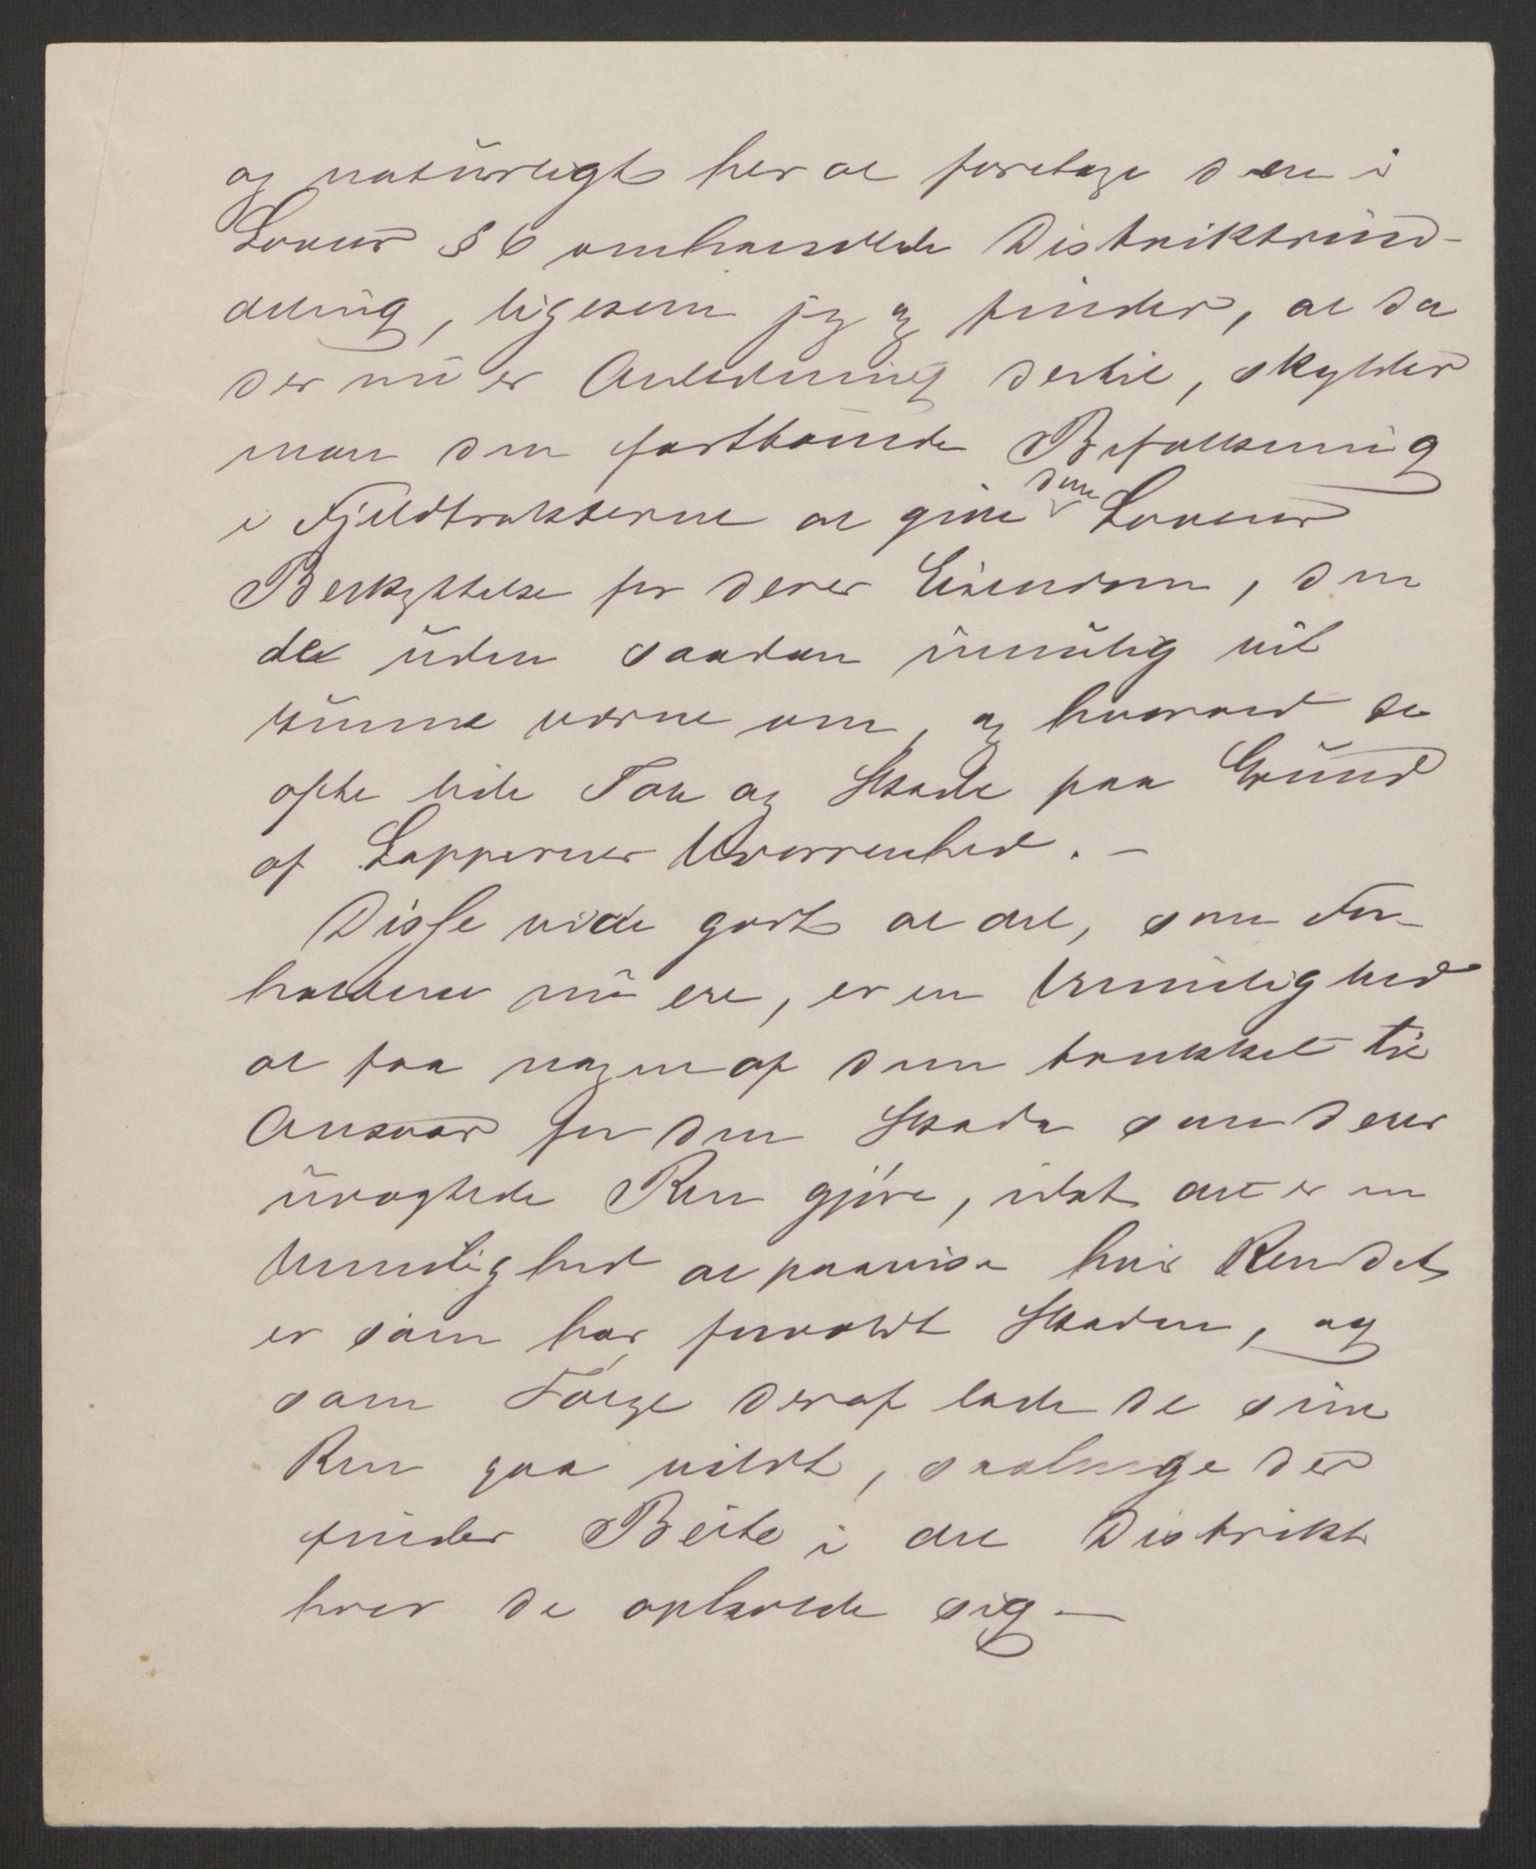 og naturligt her at foretage den i
Lovens § 6 omhandlede Distriktsind-
deling, ligesom jeg og finder, at da
der nu er Anledning dertil, skylder
man den fastboende Befolkning
i Fjeldtrakterne at give dem Lovens
Beskyttelse for deres Eiendom, som
de uden saadan umulig vil
kunne værne om, og hvorved de
ofte lide Tab og Skade paa Grund
af Lappernes Uvorrenhed. -
Disse vide godt at det, som For-
holdene nu ere, er en Umulighed
at faa nogen af dem trukket til
Ansvar for den Skade som deres
uvogtede Ren gjøre, idet det er en
Umulighed at paavise hvis Ren det
er som har forvoldt Skaden, og
som Følge deraf lade de sine
Ren gaa vildt, saalænge der
findes Beite i det Distrikt
hvor de opholde sig -